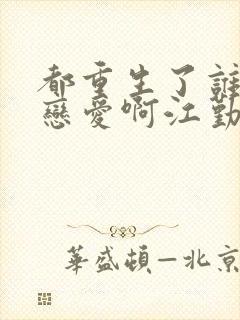 都重生了誰
戀愛啊江勤
華盛頓—北京